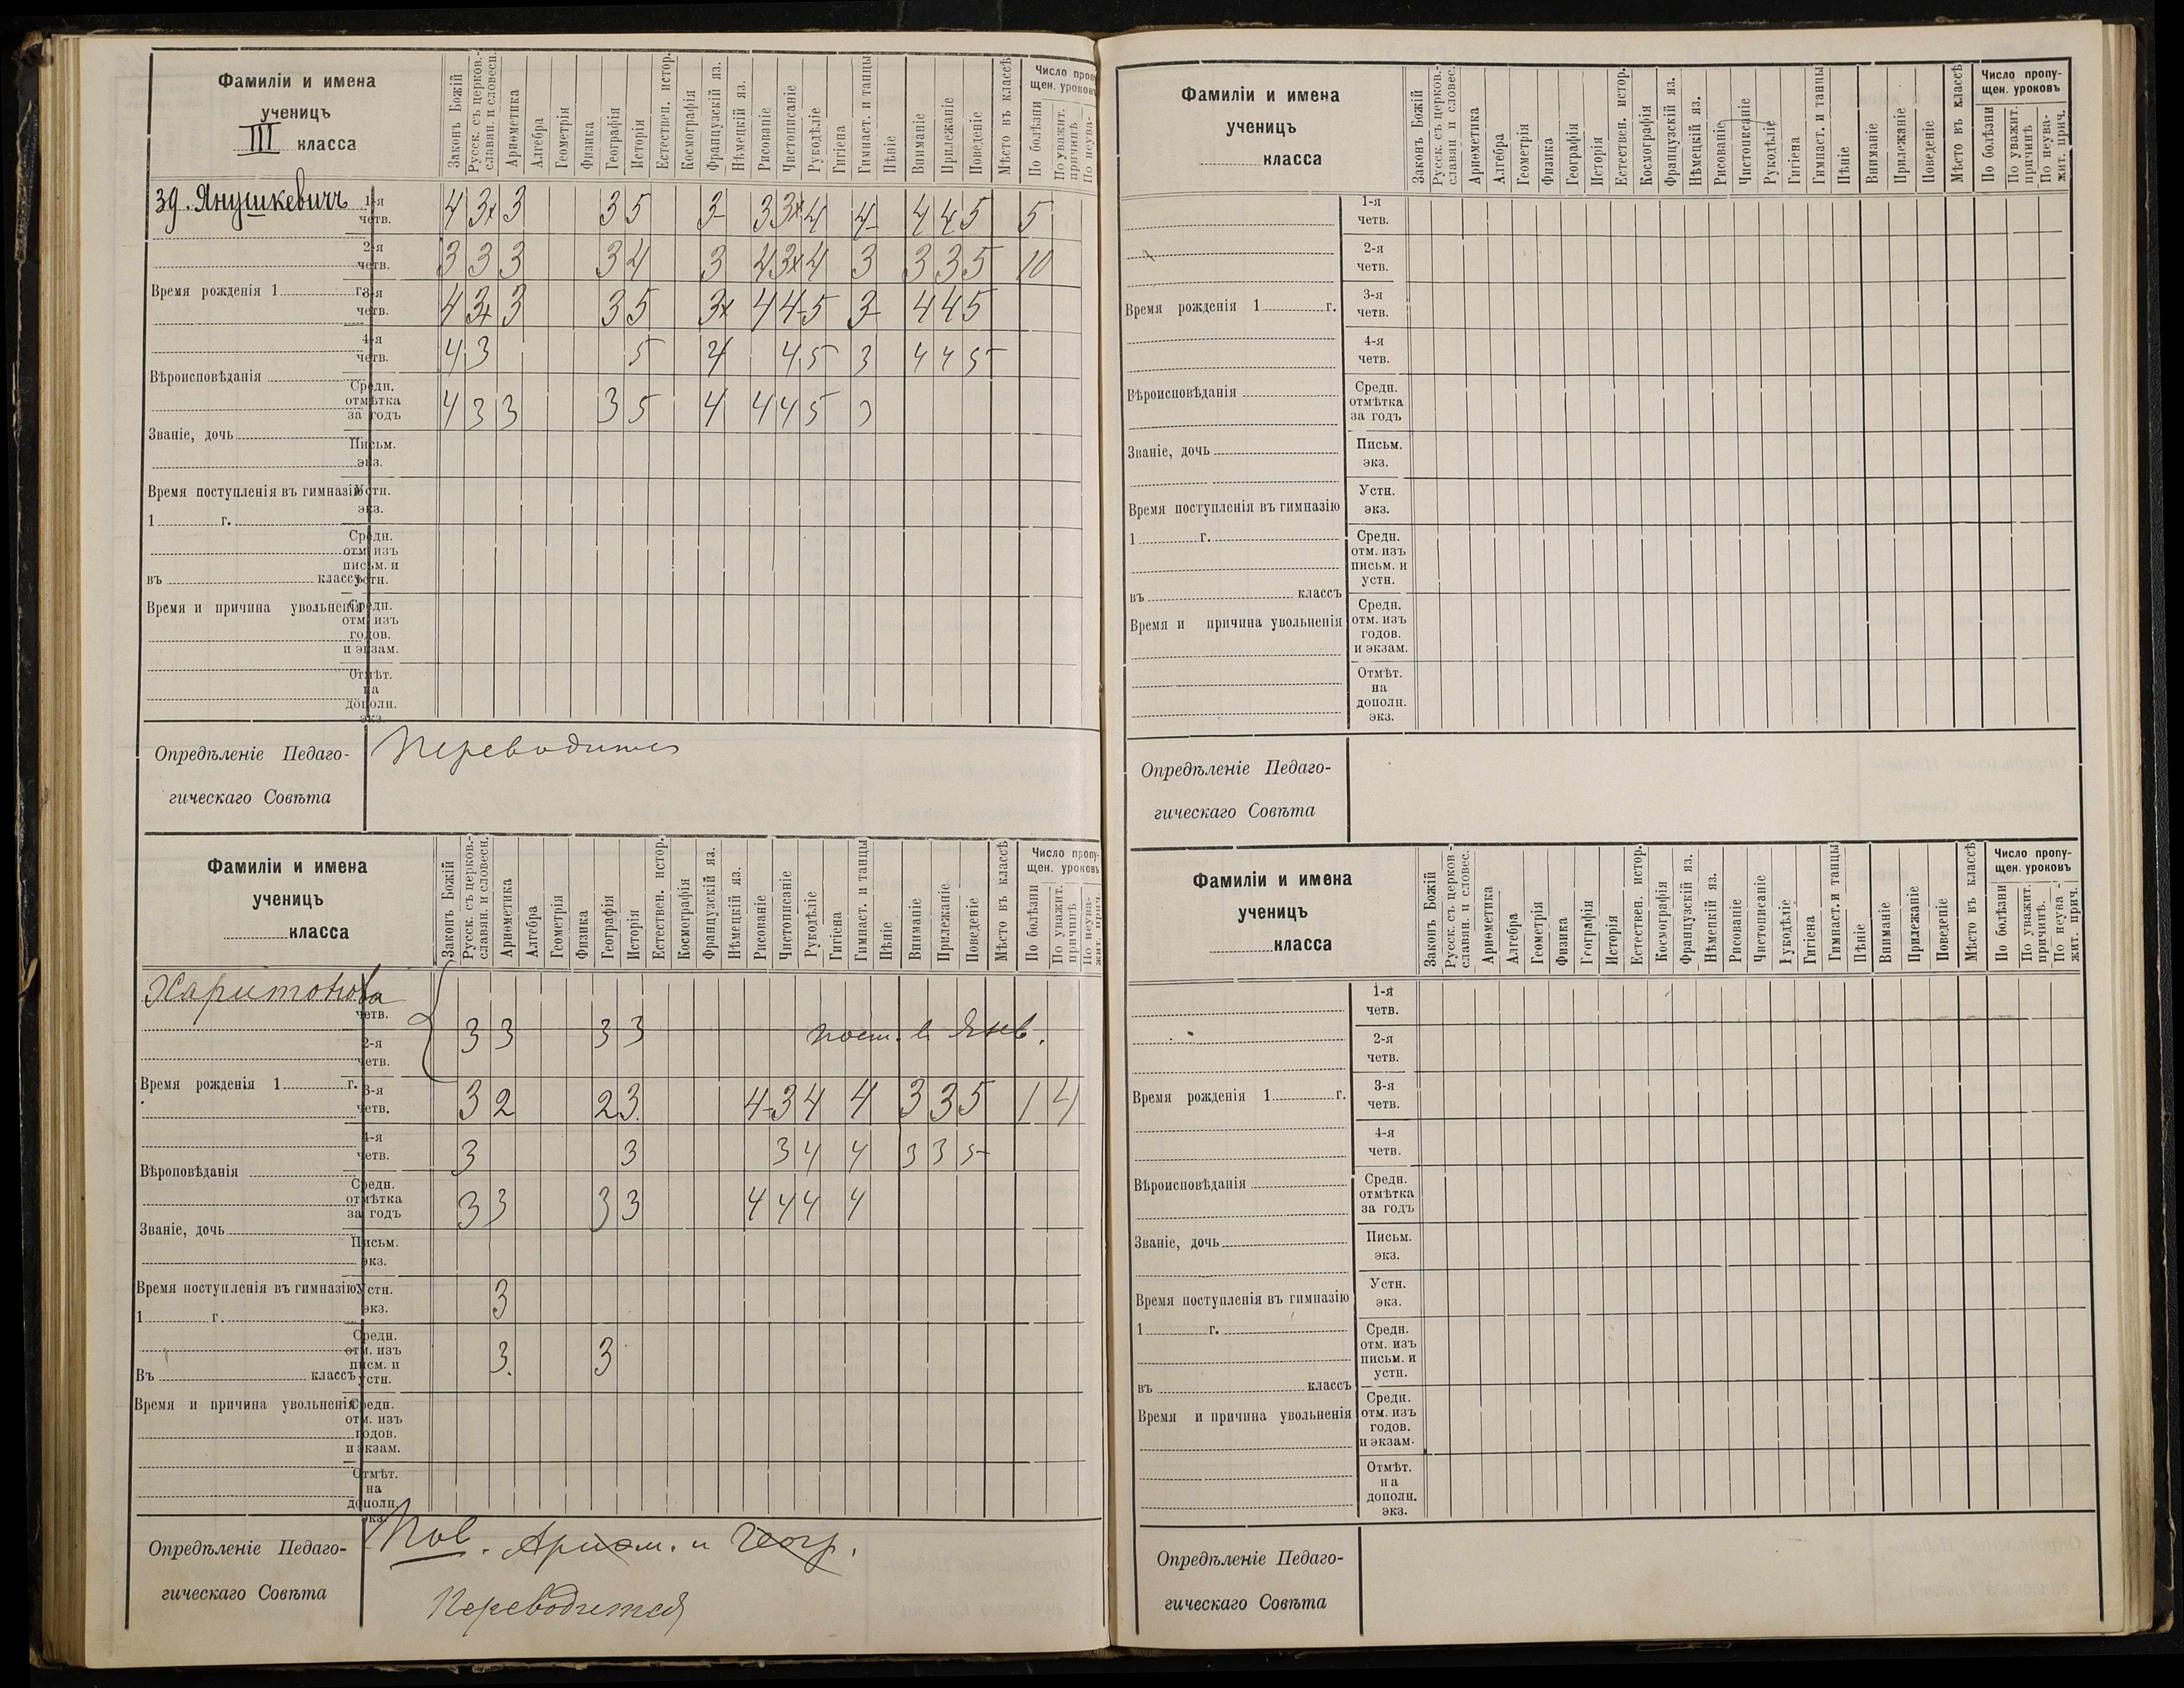 Фамиліи и имена
ученицъ
III класса
Законъ Божій
Русск. съ церков.-
славян. и словесн.
Ариѳметика
Алгебра
Геометрія
Физика
Географія
Исторія
Естествен. истор.
Космографія
Французскій яз.
Нѣмецкій яз.
Рисованіе
Чистописаніе
Рукодѣліе
Гигіена
Гимнаст. и танцы
Пѣніе
Вниманіе
Прилежаніе
Поведеніе
Мѣсто въ классѣ
Число проп
щен. уроковъ
По болѣзни
По уважит.
причинѣ
По неува-
39. Янушкевичъ
1-я четв. 4 3+ 3 3 5 3- 3 3+ 4 4- 4 4 5 5
2-я четв. 3 3 3 3 4 3 4 3+ 4 3 3 3 5 10
Время рожденія 1 г.
3-я четв. 4 3+ 3 3 5 3+ 4 4- 5 3- 4 4 5
4-я четв. 4 3 5 4 4 5 3 4 4 5
Вѣроисповѣданія
Средн. отмѣтка за годъ 4 3 3 3 5 4 4 4 5 3
Званіе, дочь
Письм. экз.
Время поступленія въ гимназію
Устн. экз.
1 г.
Средн. отм. изъ письм. и устн.
въ классъ
Время и причина увольненія
Средн. отм. изъ годов. и экзам.
Отмѣт. на дополн. экз.
Опредѣленіе Педаго-
гическаго Совѣта
Переводится
Фамиліи и имена
ученицъ
класса
Законъ Божій
Русск. съ церков.-
славян. и словесн.
Ариѳметика
Алгебра
Геометрія
Физика
Географія
Исторія
Естествен. истор.
Космографія
Французскій яз.
Нѣмецкій яз.
Рисованіе
Чистописаніе
Рукодѣліе
Гигіена
Гимнаст. и танцы
Пѣніе
Вниманіе
Прилежаніе
Поведеніе
Мѣсто въ классѣ
Число пропу-
щен. уроковъ
По болѣзни
По уважит.
причинѣ
По неува-
жит. прич.
Харитонова
четв.
2-я четв. 3 3 3 3 пост. в Янв.
Время рожденія 1 г.
3-я четв. 3 2 2 3 4- 3 4 4 3 3 5 14
4-я четв. 3 3 3 4 4 3 3 5
Вѣроповѣданія
Средн. отмѣтка за годъ 3 3 3 3 4 4 4 4
Званіе, дочь
Письм. экз.
Время поступленія въ гимназію
Устн. экз. 3
1 г.
Средн. отм. изъ писм. и устн. 3. 3
Въ классъ
Время и причина увольненія
Средн. отм. изъ годов. и экзам.
Отмѣт. на дополн. экз.
Опредѣленіе Педаго-
гическаго Совѣта
Пов. Ариѳм. и Геогр.
Переводится
Фамиліи и имена
ученицъ
класса
Законъ Божій
Русск. съ церков.-
славян и словес.
Ариѳметика
Алгебра
Геометрія
Физика
Географія
Исторія
Естествен. истор.
Космографія
Французскій яз.
Нѣмецкій яз.
Рисованіе
Чистописаніе
Рукодѣліе
Гигіена
Гимнаст. и танцы
Пѣніе
Вниманіе
Прилежаніе
Поведеніе
Мѣсто въ классѣ
Число пропу-
щен. уроковъ
По болѣзни
По уважит.
причинѣ
По неува-
жит. прич.
1-я четв.
2-я четв.
Время рожденія 1 г.
3-я четв.
4-я четв.
Вѣроисповѣданія
Средн. отмѣтка за годъ
Званіе, дочь
Письм. экз.
Время поступленія въ гимназію
Устн. экз.
1 г.
Средн. отм. изъ письм. и устн.
въ классъ
Время и причина увольненія
Средн. отм. изъ годов. и экзам.
Отмѣт. на дополн. экз.
Опредѣленіе Педаго-
гическаго Совѣта
Фамиліи и имена
ученицъ
класса
Законъ Божій
Русск. съ церков.-
славян. и словес.
Ариѳметика
Алгебра
Геометрія
Физика
Географія
Исторія
Естествен. истор.
Космографія
Французскій яз.
Нѣмецкій яз.
Рисованіе
Чистописаніе
Рукодѣліе
Гигіена
Гимнаст. и танцы
Пѣніе
Вниманіе
Прилежаніе
Поведеніе
Мѣсто въ классѣ
Число пропу-
щен. уроковъ
По болѣзни
По уважит.
причинѣ.
По неува-
жит. прич.
1-я четв.
2-я четв.
Время рожденія 1 г.
3-я четв.
4-я четв.
Вѣроисповѣданія
Средн. отмѣтка за годъ
Званіе, дочь
Письм. экз.
Время поступленія въ гимназію
Устн. экз.
1 г.
Средн. отм. изъ письм. и устн.
въ классъ
Время и причина увольненія
Средн. отм. изъ годов. и экзам.
Отмѣт. на дополн. экз.
Опредѣленіе Педаго-
гическаго Совѣта